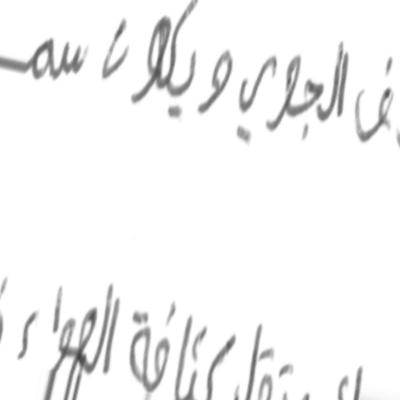 الجوي ويكون سمـ
تقل كثافة الهواء